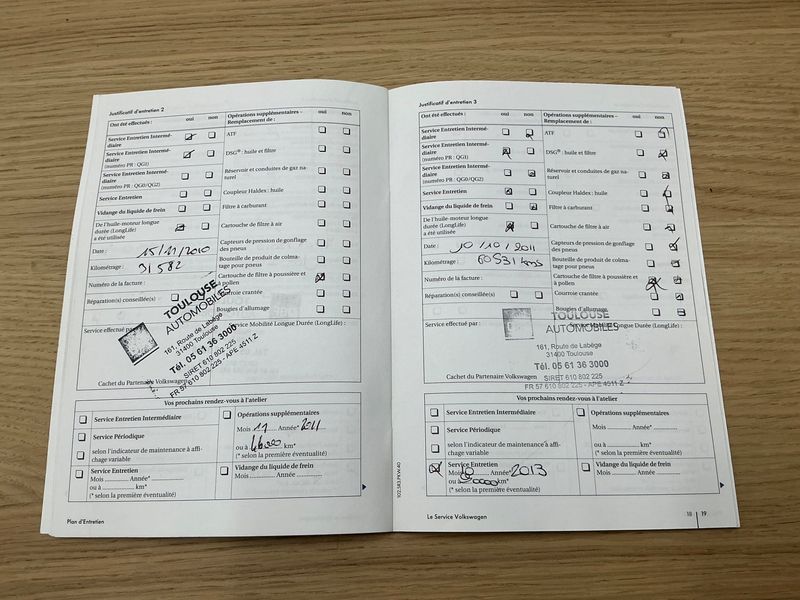 Justificatif d'entretien 2
Ont été effectués : oui non
Service Entretien Intermé-
diaire
Service Entretien Intermé-
diaire
(numéro PR : QG1)
Service Entretien Intermé-
diaire
(numéro PR : QG0/QG2)
Service Entretien
Vidange du liquide de frein
De l'huile-moteur longue
durée (LongLife)
a été utilisée
Date : 15/11/2010
Kilométrage : 31 582
Numéro de la facture :
Réparation(s) conseillée(s)
Opérations supplémentaires –
Remplacement de : oui non
ATF
DSG® : huile et filtre
Réservoir et conduites de gaz na-
turel
Coupleur Haldex : huile
Filtre à carburant
Cartouche de filtre à air
Capteurs de pression de gonflage
des pneus
Bouteille de produit de colma-
tage pour pneus
Cartouche de filtre à poussière et
à pollen
Courroie crantée
Bougies d'allumage
Service effectué par :
Service Mobilité Longue Durée (LongLife) :
TOULOUSE
AUTOMOBILES
161, Route de Labège
31400 Toulouse
Tél. 05 61 36 3000
SIRET 610 802 225
FR 57 610 802 225 - APE 4511 Z
Cachet du Partenaire Volkswagen
Vos prochains rendez-vous à l'atelier
Service Entretien Intermédiaire
Service Périodique
selon l'indicateur de maintenance à affi-
chage variable
Service Entretien
Mois .......... Année*
ou à .......... km*
(* selon la première éventualité)
Opérations supplémentaires
Mois 11 Année* 2011
ou à km*
(* selon la première éventualité)
Vidange du liquide de frein
Mois .......... Année*
Plan d'Entretien
Justificatif d'entretien 3
Ont été effectués : oui non
Service Entretien Intermé-
diaire
Service Entretien Intermé-
diaire
(numéro PR : QG1)
Service Entretien Intermé-
diaire
(numéro PR : QG0/QG2)
Service Entretien
Vidange du liquide de frein
De l'huile-moteur longue
durée (LongLife)
a été utilisée
Date : 10/10/2011
Kilométrage : 60531 kms
Numéro de la facture :
Réparation(s) conseillée(s)
Opérations supplémentaires –
Remplacement de : oui non
ATF
DSG® : huile et filtre
Réservoir et conduites de gaz na-
turel
Coupleur Haldex : huile
Filtre à carburant
Cartouche de filtre à air
Capteurs de pression de gonflage
des pneus
Bouteille de produit de colma-
tage pour pneus
Cartouche de filtre à poussière et
à pollen
Courroie crantée
Bougies d'allumage
Service effectué par :
Service Mobilité Longue Durée (LongLife) :
TOULOUSE
AUTOMOBILES
161, Route de Labège
31400 Toulouse
Tél. 05 61 36 3000
SIRET 610 802 225
FR 57 610 802 225 - APE 4511 Z
Cachet du Partenaire Volkswagen
Vos prochains rendez-vous à l'atelier
Service Entretien Intermédiaire
Service Périodique
selon l'indicateur de maintenance à affi-
chage variable
Service Entretien
Mois 10 Année* 2013
ou à km*
(* selon la première éventualité)
Opérations supplémentaires
Mois .......... Année*
ou à .......... km*
(* selon la première éventualité)
Vidange du liquide de frein
Mois .......... Année*
102.5R3.PKW.40
Le Service Volkswagen
18 | 19